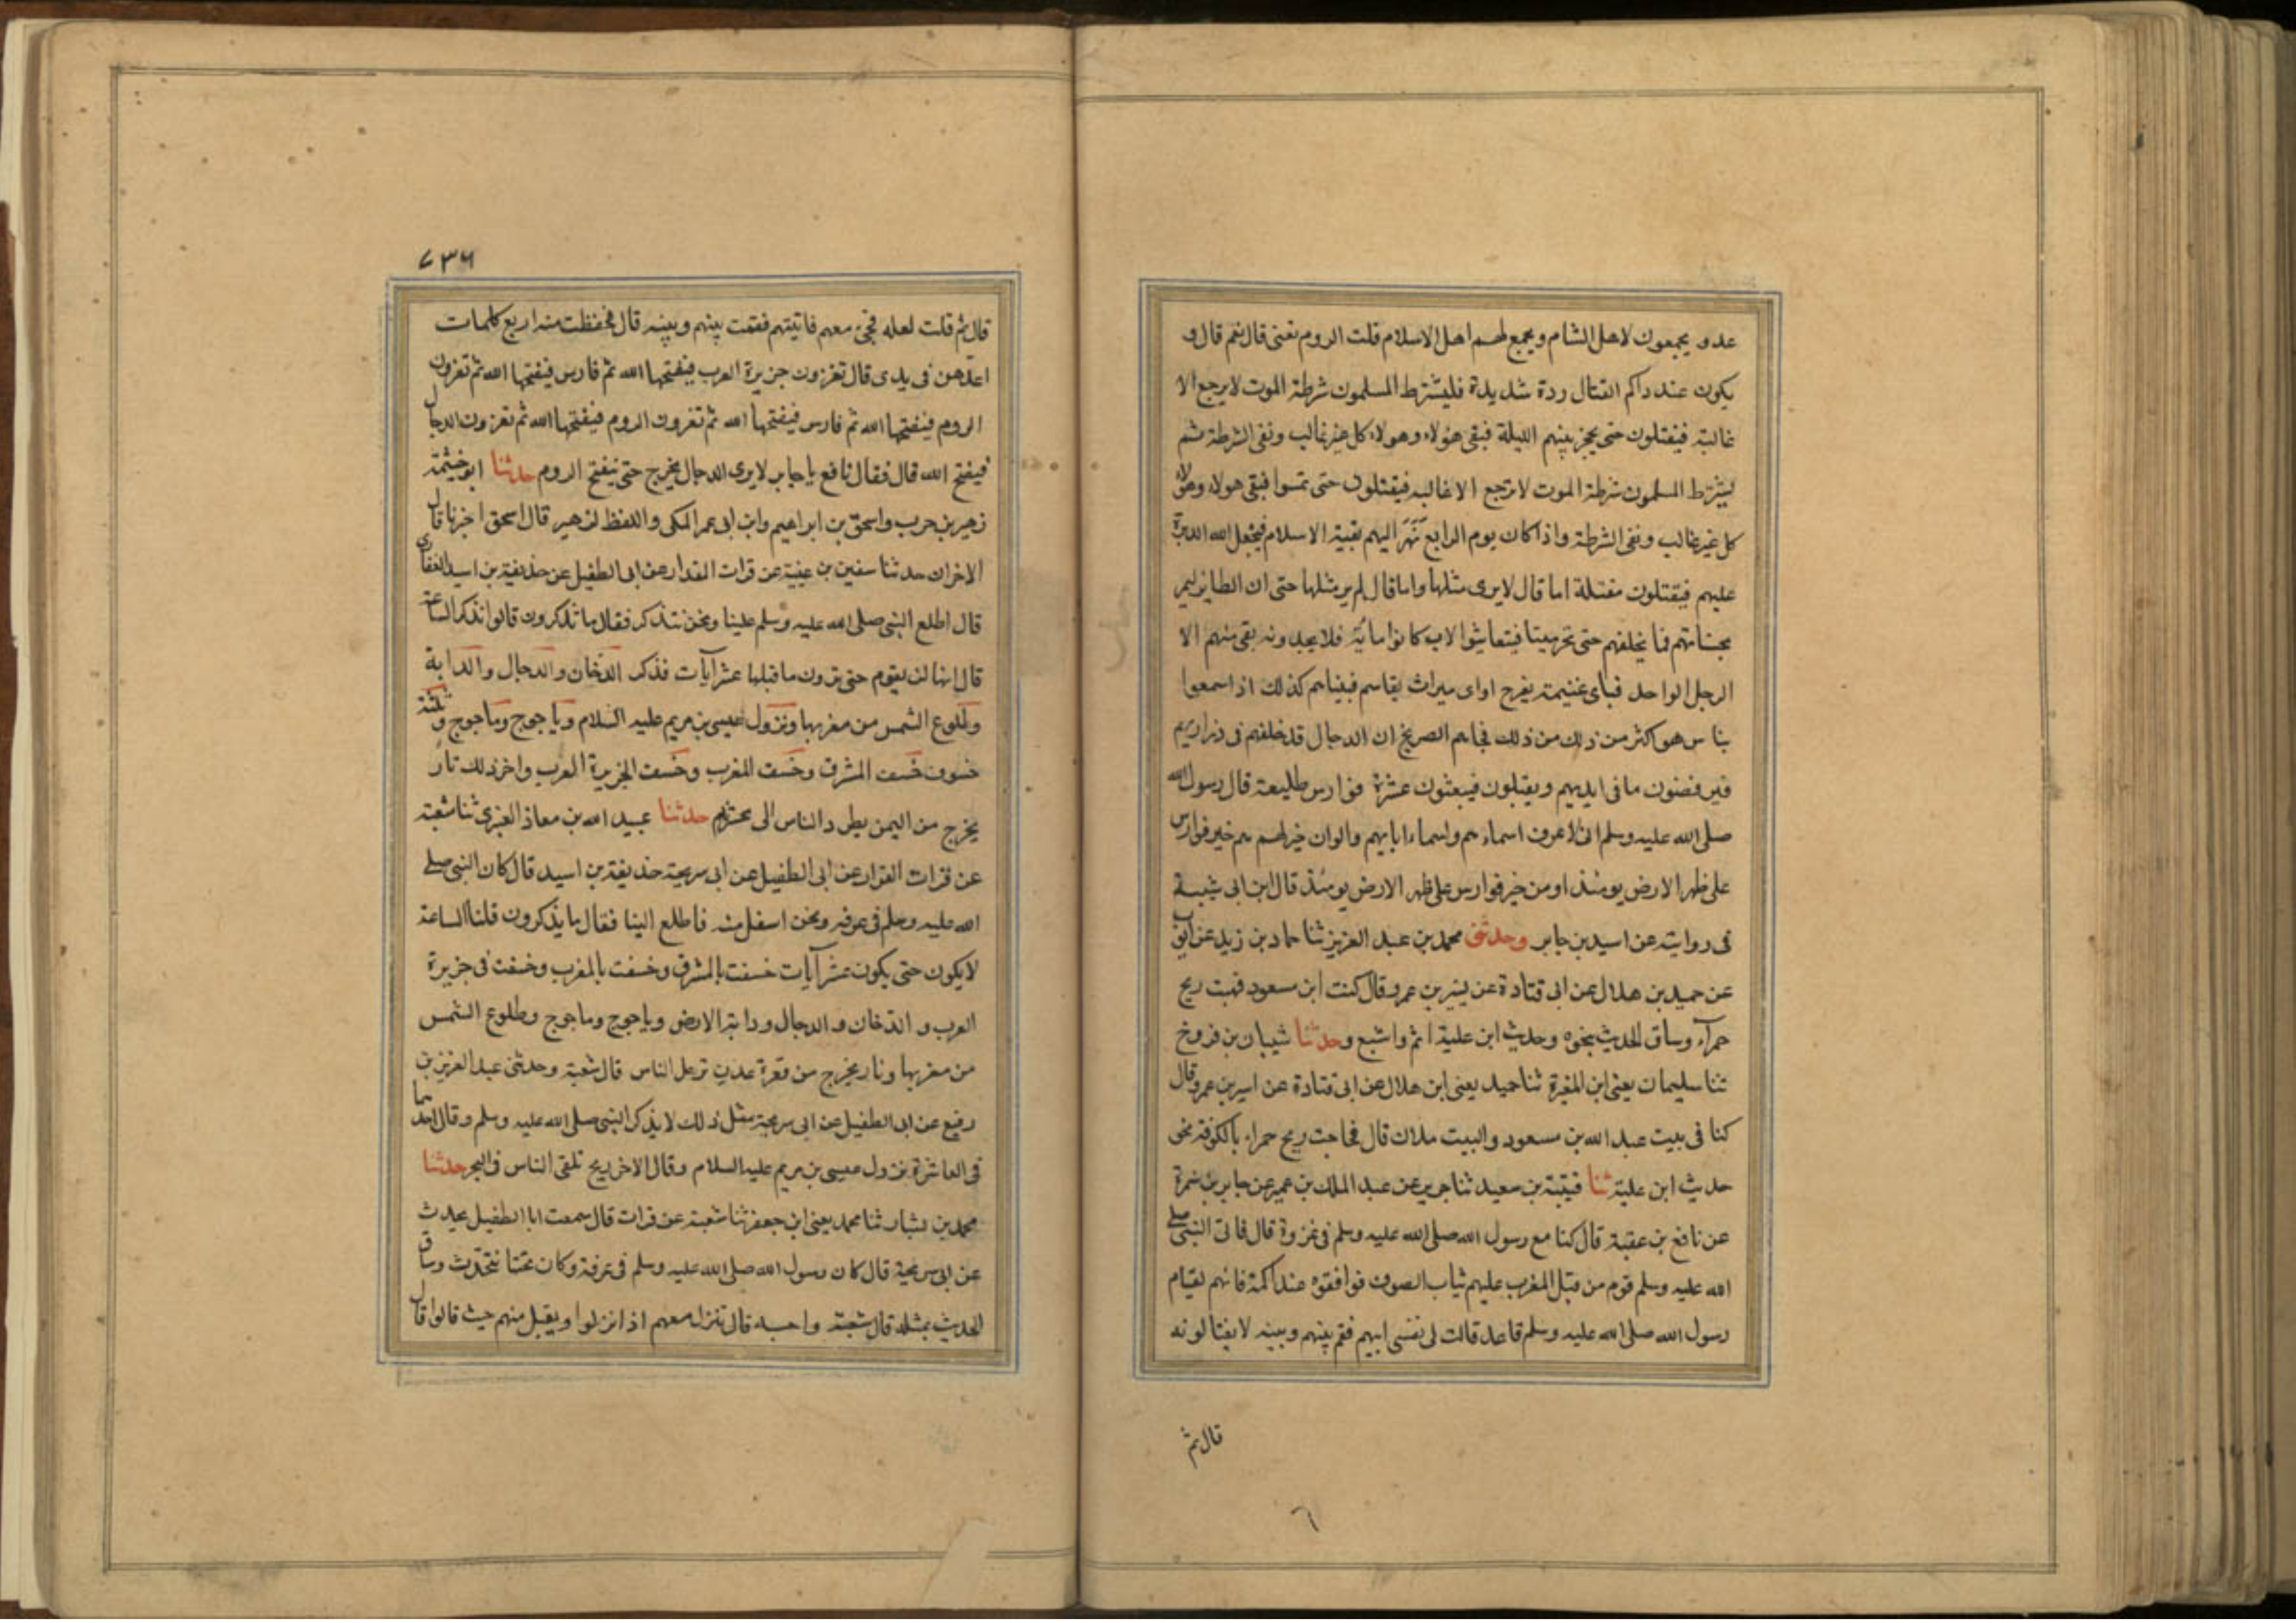 عدو يجمعون لاهل الشام ويجمع لهم اهل الاسلام قلت الروم تعنى قال نعم قال و
يكون عند ذاكم القتال ردة شديدة فليشترط المسلمون شرطة الموت لا يرجع الا
غالبة فيقتلون حتى يحجز بينهم الليلة فبقى هؤلاء وهولاء كل غير غالب ونفى الشرطة ثم
يشترط المسلمون شرطة الموت لا ترجع الا غالبه فيقتلون حتى تمسوا فبقى هولاء وهولاء
كل غير غالب ونفى الشرطة واذا كان يوم الرابع نَهَرَ اليهم بقية الاسلام فيجعل الله الدبرة
عليهم فيقتلون مقتلة اما قال لا يرى مثلها واما قال لم ير مثلها حتى ان الطاير ليمر
بجنباتهم فما يخلفهم حتى تخر ميتا فيتعاشوا الاب كانوا مائة فلا يجدونه بقى منهم الا
الرجل الواحد فباى غنيمة يفرح او اى ميراث يقاسم فبيناهم كذلك اذ اسمعوا
بناس هو اكثر من ذلك من ذلك فجاهم الصريخ ان الدجال قد خلفهم فى ذراريهم
فيرفضون ما فى ايديهم ويقبلون فيبعثون عشرة فوارس طليعة قال رسول الله
صلى الله عليه وسلم انى لاعرف اسماءهم واسماء ابايهم والوان خيلهم هم خير فوارس
على ظهر الارض يومئذ او من خير فوارس على ظهر الارض يومئذ قال ابن ابى شيبة
فى روايته عن اسيد بن جابر وحدثنى محمد بن عبد العزيز ثنا حماد بن زيد عن ايوب
عن حميد بن هلال عن ابى قتادة عن يسير بن عمرو قال كنت ابن مسعود فهبت ريح
حمرآء وساق الحديث بنحوه وحديث ابن علية اتم واشبع وحدثنا شيبان بن فروخ
ثنا سليمان يعنى ابن المغيرة ثنا حميد يعنى ابن هلال عن ابى قتادة عن اسير بن عمرو قال
كنا فى بيت عبد الله بن مسعود والبيت ملان قال فهاجت ريح حمراء بالكوفة نحو
حديث ابن علية ثنا قتيبة بن سعيد ثنا جرير عن عبد الملك بن عمير عن جابر بن سمرة
عن نافع بن عقبة قال كنا مع رسول الله صلى الله عليه وسلم فى غزوة قال فاتى النبى صلى
الله عليه وسلم قوم من قبل المغرب عليهم ثياب الصوف فوافقوه عند اكمة فانهم لقيام
رسول الله صلى الله عليه وسلم قاعد قالت لى نفسى ايتهم فقم بينهم وبينه لا يغتالونه
قال ثم
٦
٧٣٦
قال ثم قلت لعله نجى معهم فاتيتهم فقمت بينهم وبينه قال فحفظت منه اربع كلمات
اعدهن فى يدى قال تغزون جزيرة العرب فيفتحها الله ثم فارس فيفتحها الله ثم تغزون
الروم فيفتحها الله ثم فارس فيفتحها الله ثم تغزون الروم فيفتحها الله ثم تغزون الدجال
فيفتح الله قال فقال نافع يا جابر لا يرى الدجال يخرج حتى يفتح الروم حدثنا ابو خيثمة
زهير بن حرب واسحق بن ابراهيم وابن ابى عمر المكى واللفظ لزهير قال اسحق اخبرنا قال
الاخران حدثنا سفين بن عيينة عن فرات القدار عن ابى الطفيل عن حذيفة بن اسيد الغفارى
قال اطلع النبى صلى الله عليه وسلم علينا ونحن نتذكر فقال ما تذكرون قالوا نذكر الساعة
قال انها لن يقوم حتى ترون ما قبلها عشر آيات فذكر الدخان والدجال والدابة
وطلوع الشمس من مغربها ونزول عيسى بن مريم عليه السلام وياجوج وماجوج وثلثة
خسوف خسف المشرق وخسف المغرب وخسف الجزيرة العرب واخر ذلك نار
يخرج من اليمن يطرد الناس الى محشرهم حدثنا عبيد الله بن معاذ العنبرى ثنا شعبة
عن فرات القزاز عن ابى الطفيل عن ابى سريحة حذيفة بن اسيد قال كان النبى صلى
الله عليه وسلم فى غرفة ونحن اسفل منه فاطلع الينا فقال ما يذكرون قلنا الساعة
لا يكون حتى يكون عشر آيات خسفت بالمشرق وخسفت بالمغرب وخسفت فى جزيرة
العرب و الدخان و الدجال ودابة الارض وياجوج وماجوج وطلوع الشمس
من مغربها ونار يخرج من قعرة عدن ترحل الناس قال شعبة وحدثنى عبد العزيز بن
رفيع عن ابى الطفيل عن ابى سريحة مثل ذلك لا يذكر النبى صلى الله عليه وسلم وقال احدهما
فى العاشرة نزول عيسى بن مريم عليه السلام وقال الاخر ريح تلقى الناس فى البحر حدثنا
محمد بن بشار ثنا محمد يعنى ابن جعفر ثنا شعبة عن فرات قال سمعت ابا الطفيل يحدث
عن ابى سريحة قال كان رسول الله صلى الله عليه وسلم فى غرفة وكان تحتنا نتحدث وساق
الحديث بمثله قال شعبة واحسبه قال تنزل معهم اذا نزلوا ويقيل منهم حيث قالوا قال